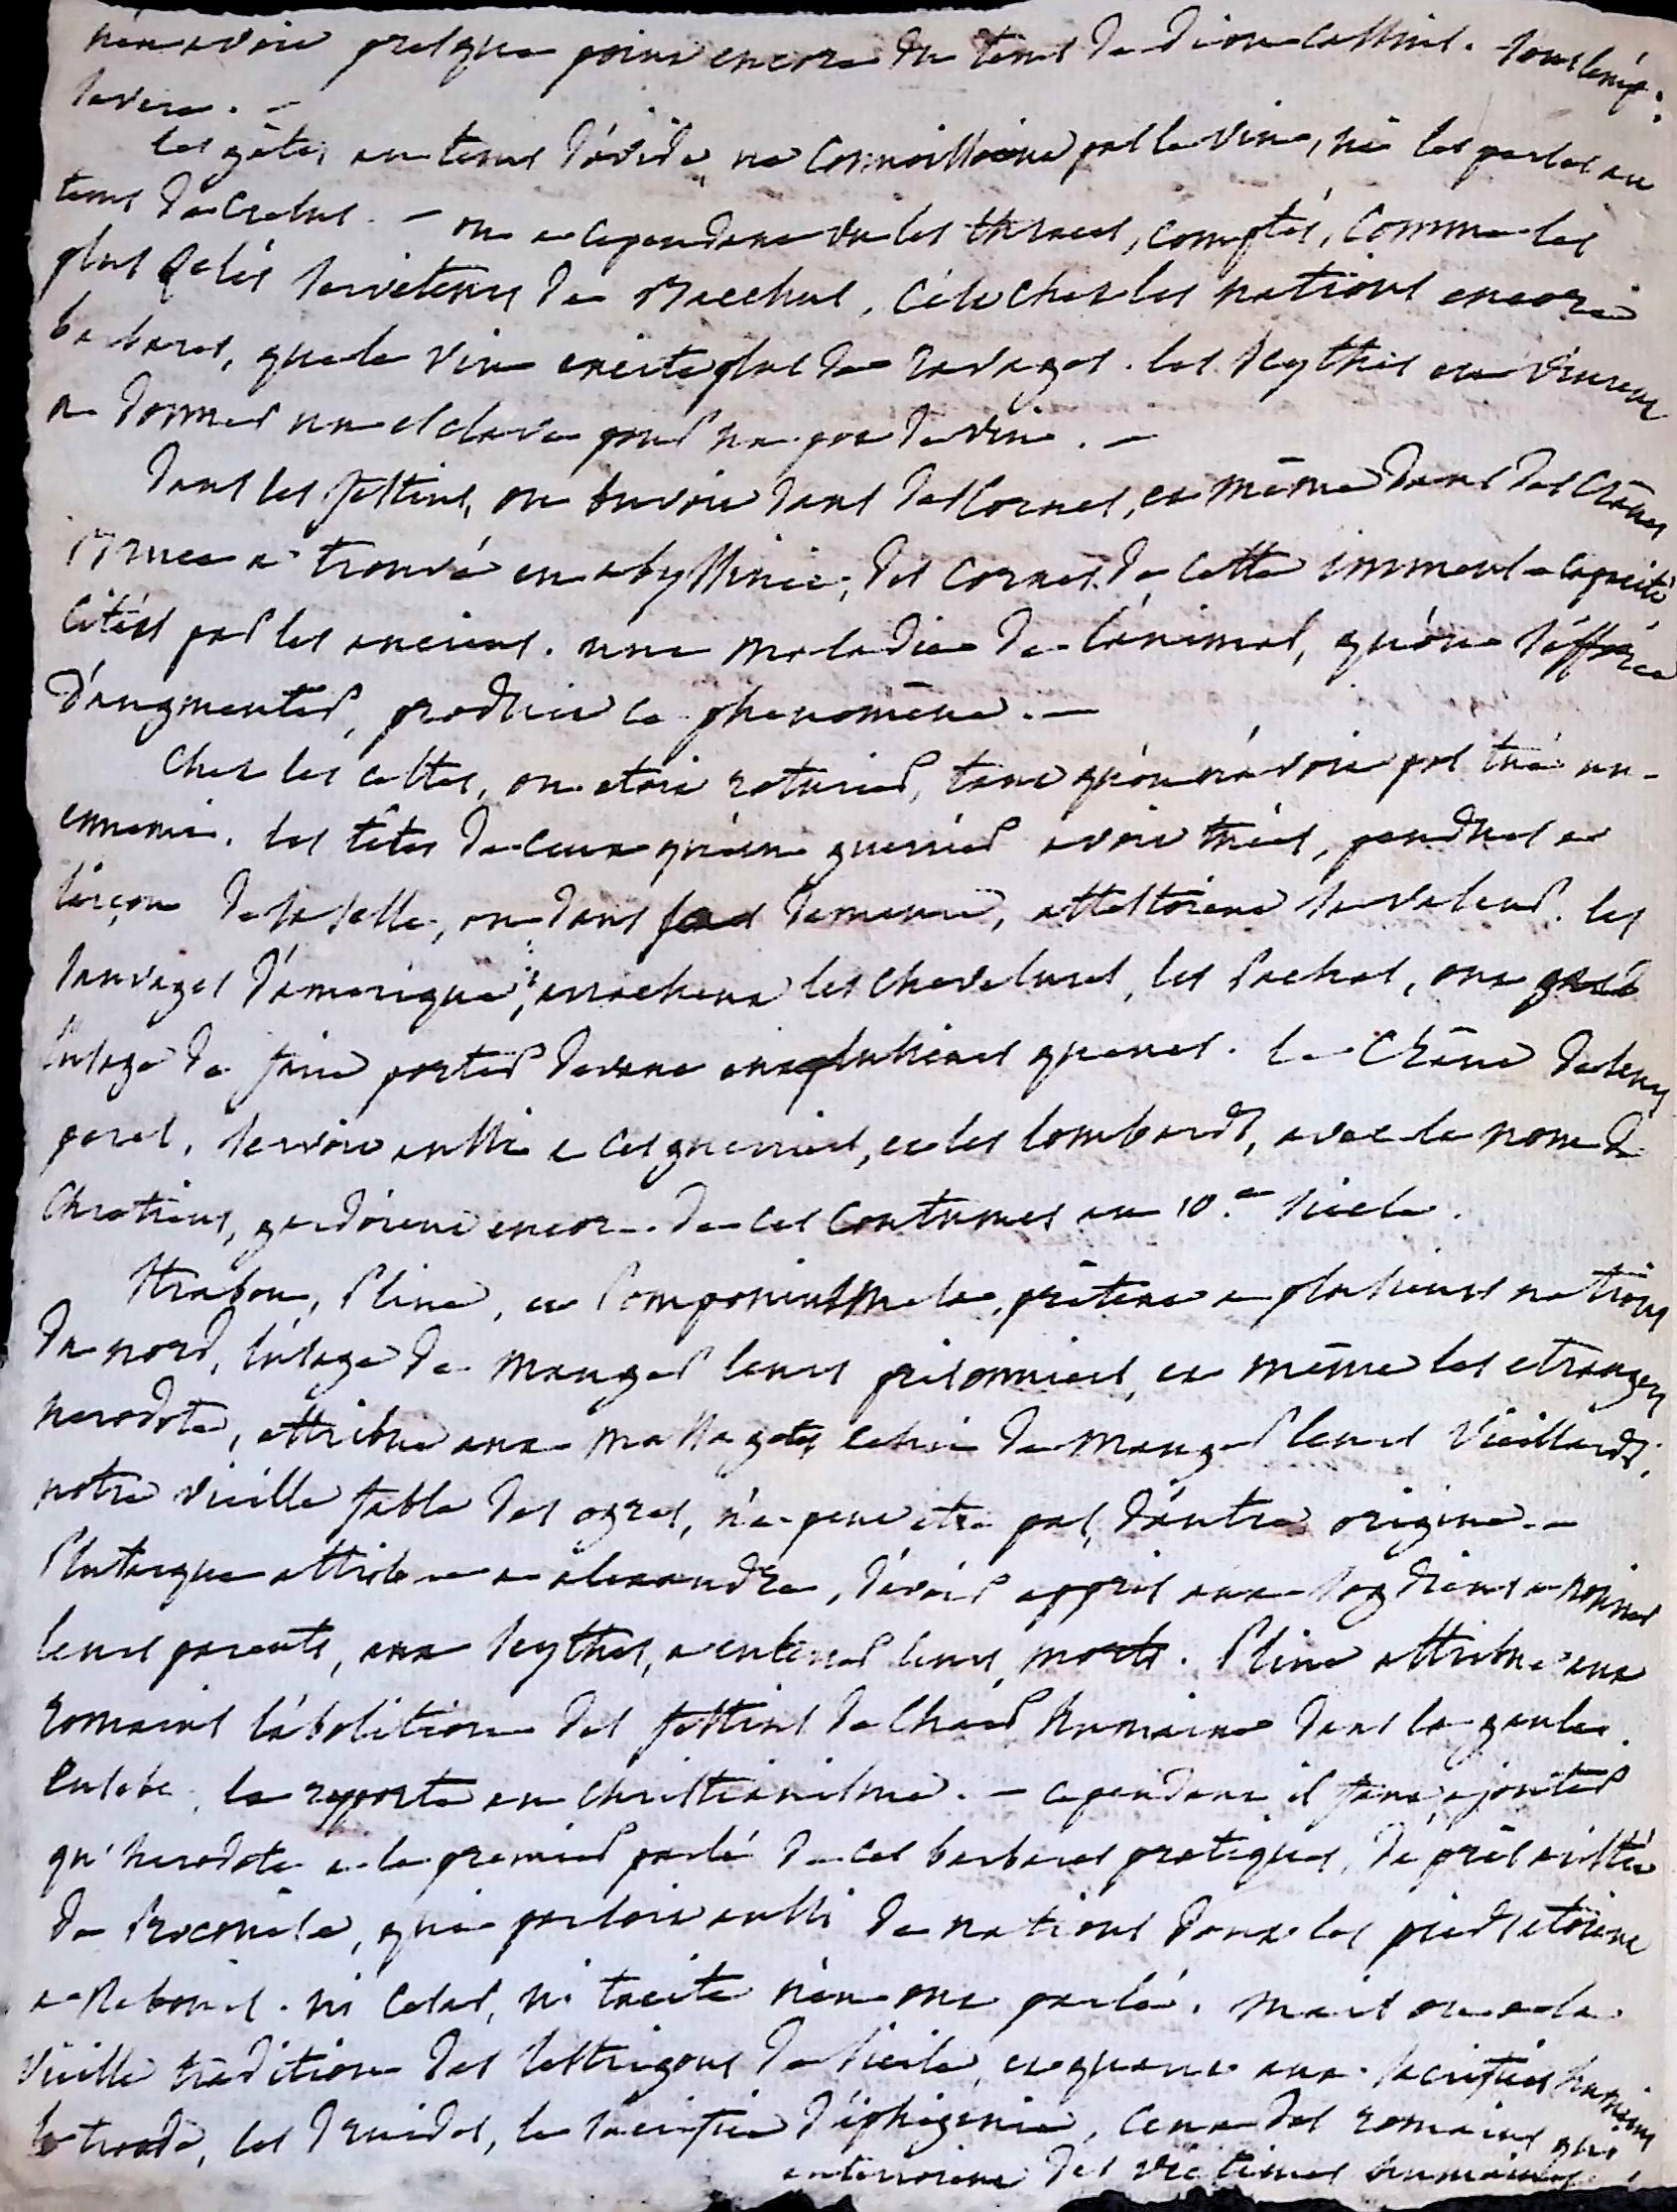 n'en avoit presque point encore du tems de dion cassius. sous l'emp:
severe. —
les gètes au tems d'ovide, ne connaissoient pas le vin, ni les perses au
tems de cresus. — on a cependant vu les thraces, comptés, comme les
plus zelés serviteurs de Bacchus. C'est chez les nations encore
barbares, que le vin excite plus de ravages. les scythes en vinrent
a donner un esclave pour un pot de vin. —
dans les festins, on buvoit dans des cornes, et même dans des crânes
Bruce a trouvé en abyssinie, des cornes de cette immense capacité
citées par les anciens. une maladie de l'animal, qu'on s'efforce
d'augmenter, produit ce phenomène. —
chez les celtes, on etoit roturier, tant qu'on n'avoit pas tué un
ennemi. les têtes de ceux qu'un guerrier avoit tués, pendues a
l'arçon de sa selle, ou dans sa demeure, attestoient sa valeur. les
sauvages d'amerique, arrachent les chevelures, les Pachas, ont
l'usage de faire porter devant eux plusieurs queues. le crâne de leurs
peres, servoit aussi a ces guerriers, et les lombards, avec le nom de
chretiens, gardoient encore de ces coutumes au 10.e siecle.
Strabon, Pline, et Pomponius Mela, prêtent a plusieurs nations
du nord, l'usage de manger leurs prisonniers, et même les etrangers
herodote, attribue aux massagetes celui de manger leurs vieillards.
notre vieille fable des ogres, n'a peut etre pas, d'autre origine. —
Plutarque attribue a alexandre, d'avoir appris aux sogdiens a nourrir
leurs parents, aux scythes, a enterrer leurs morts. Pline attribue aux
romains l'abolition des festins de chair humaine dans la gaule.
Eusebe, la rapporte au christianisme. — cependant il faut ajouter
qu'herodote a le premier parlé de ces barbares pratiques, d'après aristée
de Proconese, qui parloit aussi de nations dont les pieds etoient
a rebours. ni Cesar, ni tacite n'en ont parlé. mais on a la
vieille tradition des lestrigons de sicile, et quant aux sacrifices humains
les druides, le sacrifice d'iphigenie, ceux des romains qui
enterroient des victimes humaines.